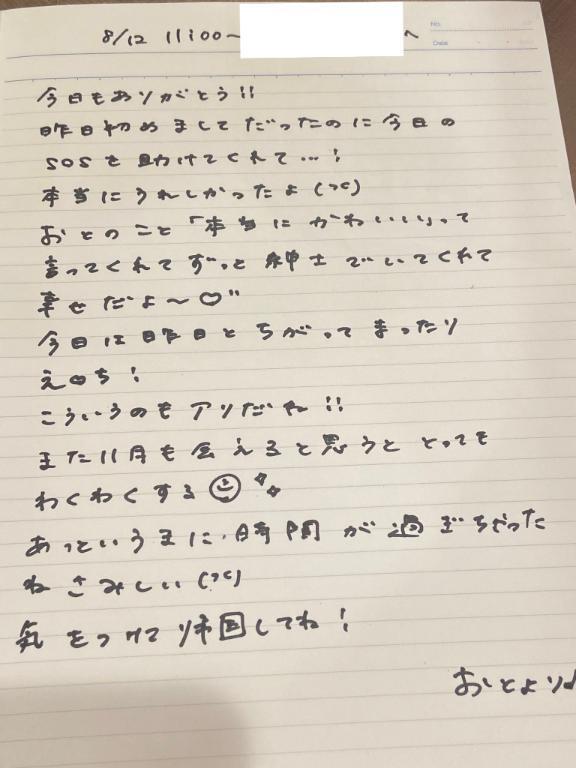 8/12 11:00〜 へ
No.
Date
今日もありがとう!!
昨日初めましてだったのに今日の
SOSを助けてくれて…!
本当にうれしかったよ(つC)
おとのこと「本当にかわいい」って
言ってくれてずっと紳士でいてくれて
幸せだよ〜♡"
今日は昨日とちがってまったり
え♡ち!
こういうのもアリだね!!
また11月も会えると思うととっても
わくわくする☺
あっというまに時間が過ぎちゃった
ねさみしい(つC)
気をつけて帰国してね!
おとより♪